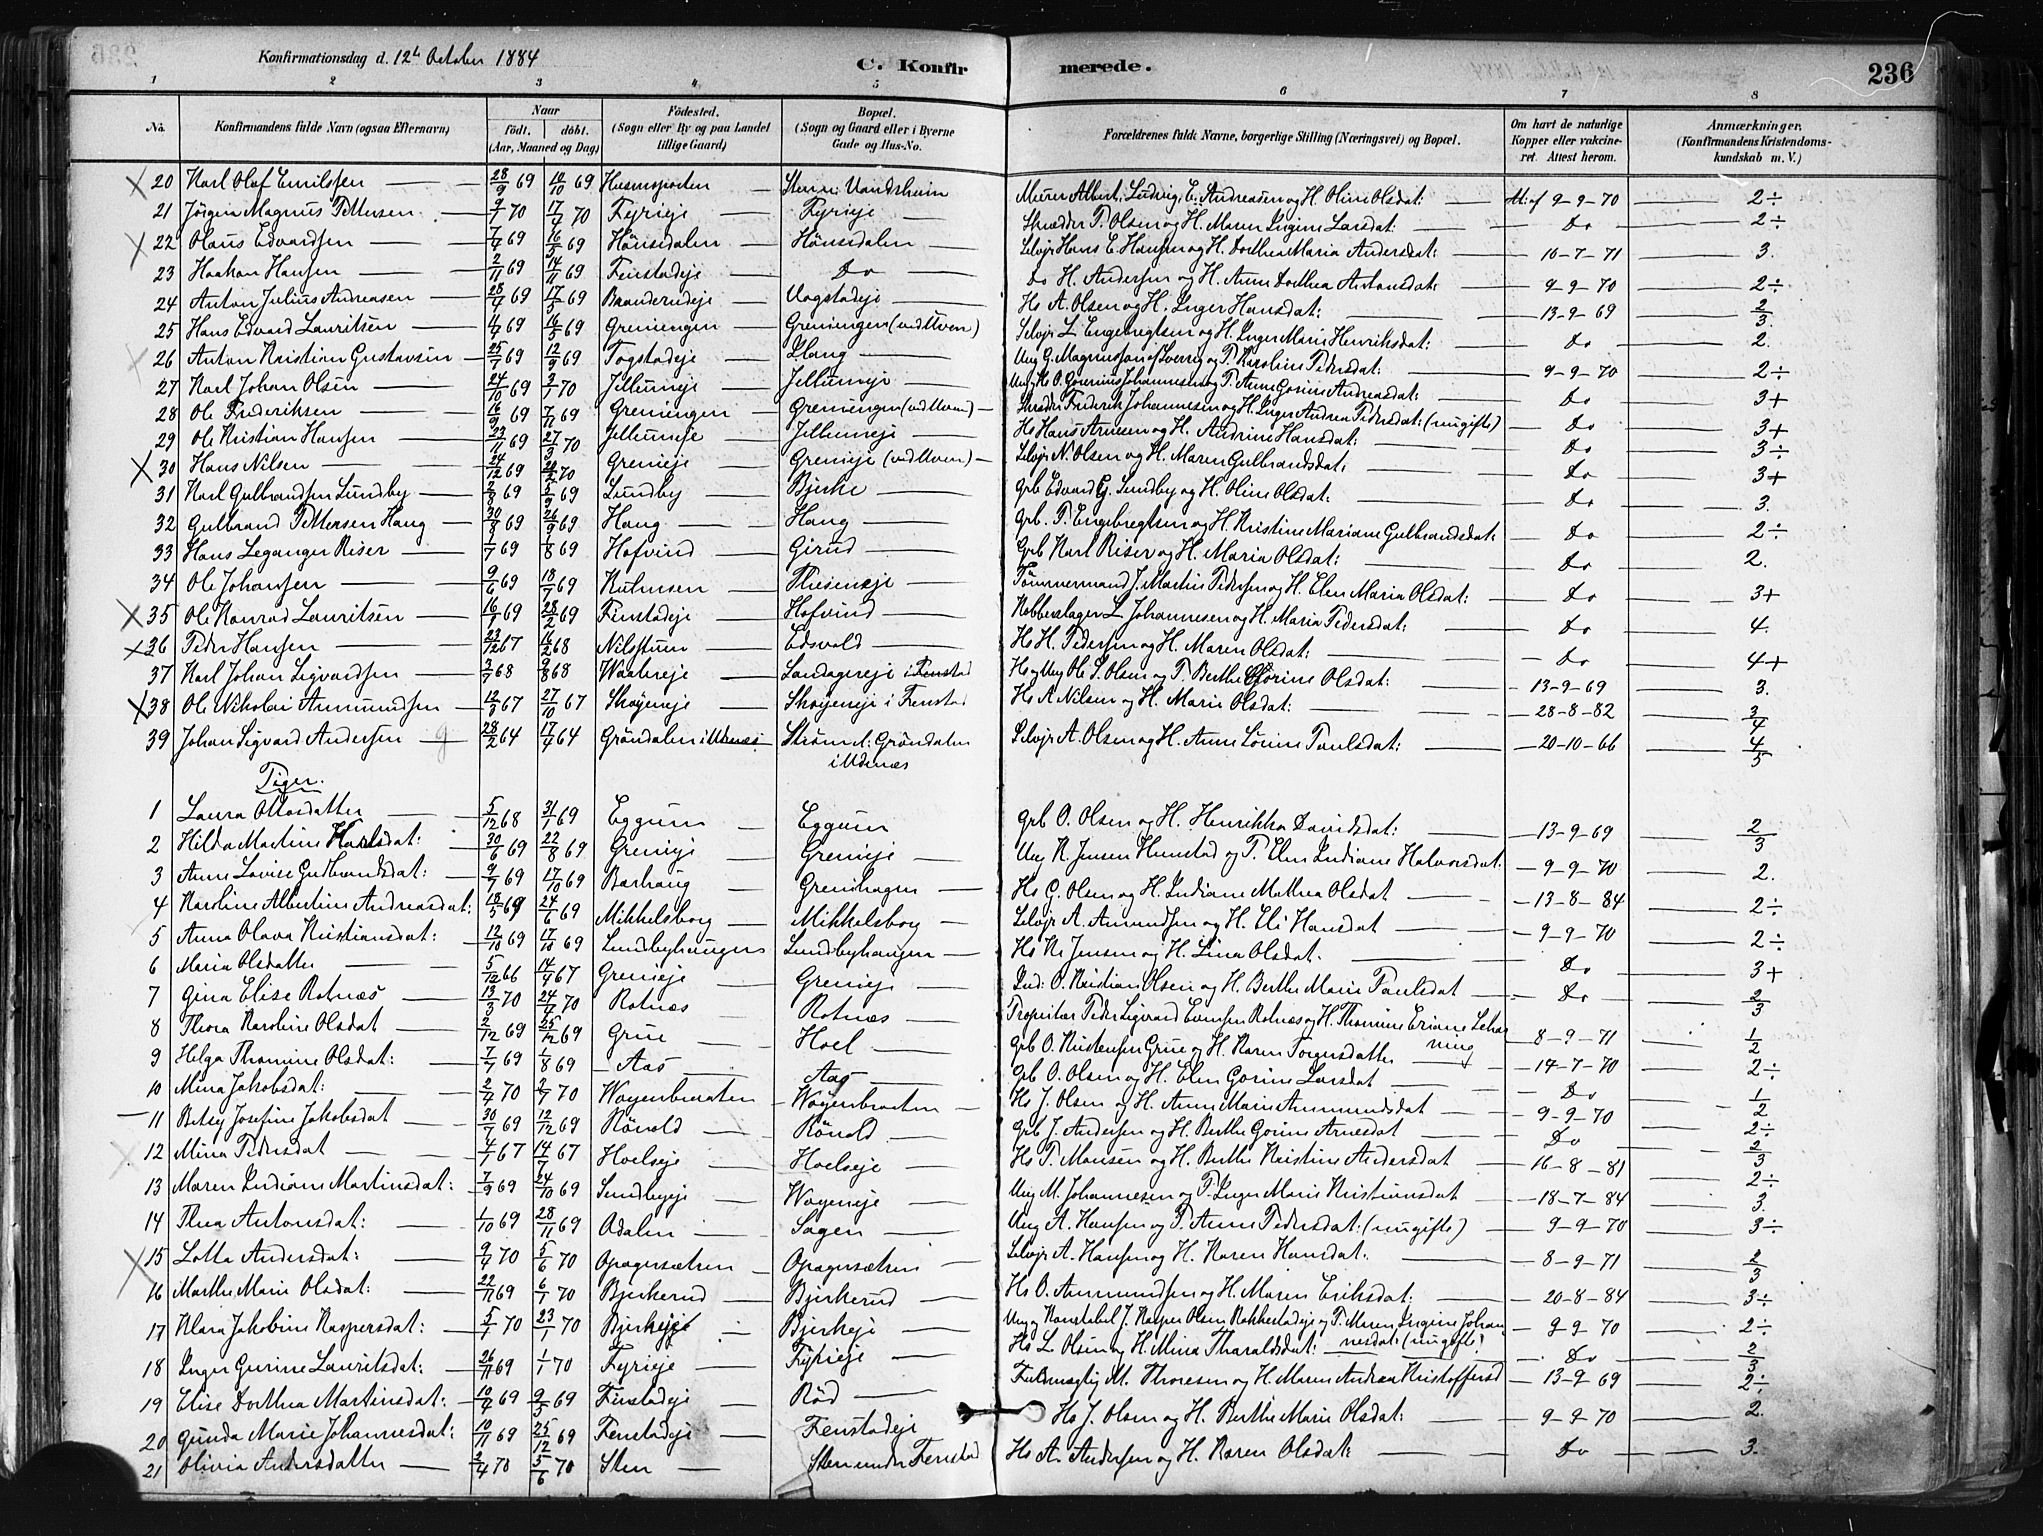 Konfirmationsdag d. 12t October 1884 C. Konfirmerede. 236
1 2 3 4 5 6 7 8
No. Konfirmandens fulde Navn (ogsaa Efternavn) Naar født. døbt. (Aar, Maaned og Dag) Fødested. (Sogn eller By og paa Landet tillige Gaard) Bopæl. (Sogn og Gaard eller i Byerne Gade og Hus-No. Forældrenes fulde Navne, borgerlige Stilling (Næringsvei) og Bopæl. Om havt de naturlige Kopper eller vakcineret. Attest herom. Anmærkninger. (Konfirmandens Kristendomskundskab m. V.)
20 Karl Olaf Emilssen 28/9 69 10/10 69 Husmoporten Murer Albert Ludvig E. Andreasen og H. Oline Olsdat: At: af 9-9-70 2÷
21 Jørgen Magnus Pettersen 70 70 Fyrieje Fyrieje Skrædder P. Olsen og H. Maren Larsdat: Do 2÷
22 Olaus Edvardsen 7/4 69 16/5 69 Hönsedalen Hönsedalen Selvejr Hans E. Hansen og H. Dorthea Maria Andersdat: 10-7-71 3.
23 Haakon Hansen 2/11 69 14/11 69 Fenstadeje Do Do H. Andersen og H. Anne Dorthea Antonsdat: 9-9-70 2÷
24 Anton Julius Andreasen 69 17/5 69 Branderudeje Vogstadeje Hs A. Olsen og H. Inger Hansdat: 13-9-69 2/3
25 Hans Edvard Lauritsen 69 16/5 69 Greningen Greningen (ved Uven) Selvejr L. Engebregtsen og H. Inger Marie Henriksdat: Do 2.
26 Anton Kristian Gustavsen 25/7 69 12/9 69 Togstadeje Hang Ung G. Magnussøn af Sverrig og P. Karoline Pedersdat: 9-9-70 2÷
27 Karl Johan Olsen 24/10 69 70 Jellumeje Jellumeje Ung Hs O. Johannesen og P. Anne Gorine Andreasdat: Do 3+
28 Ole Frederiksen 16/9 69 7/11 69 Greningen Greningen (ved Uven) Skrædder Frederik Johannesen og H. Inger Andrea Pedersdat: (nu gifte) Do 3+
29 Ole Kristian Hansen 23/11 69 27/3 70 Jellumeje Jellumeje Hs Hans Arnesen og H. Andrine Hansdat: Do 3÷
30 Hans Nilsen 24/12 69 70 Grenieje Grenieje (ved Uven) Selvejr N. Olsen og H. Maren Gulbrandsdat: Do 3+
31 Karl Gulbrandsen Lundby 2/8 69 5/9 69 Lundby Bjerke Grb Edvard G. Lundby og H. Oline Olsdat: Do 3.
32 Gulbrand Pettersen Haug 30/8 69 26/9 69 Haug Haug Grb. P. Engebregtsen og H. Kristine Mariane Gulbrandsdat: Do 2÷
33 Hans Leganger Riser 69 69 Hofvind Girud Grb Karl Riser og H. Maria Olsdat: Do 2.
34 Ole Johansen 9/6 69 18/7 69 Kulmoen Theieneje Tømmermand J. Martin Pedersen og H. Elen Maria Olsdat: Do 3+
35 Ole Konrad Lauritsen 16/1 69 28/2 69 Finstadeje Hofvind Kobberslager L. Johannesen og H. Maria Pedersdat: Do 4.
36 Peder Hansen 23/12 67 16/2 68 Nilsstuen Edsvold Hs H. Pedersen og H. Maren Olsdat: Do 4+
37 Karl Johan Sigvardsen 3/7 68 9/8 68 Waatereje i Fenstad Hs og Ung Ole S. Olsen og P. Berthe Olsdat: 13-9-69 3.
38 Ole Nikolai Ammundsen 12/9 67 27/10 67 Skøyeneje Skøyeneje i Fenstad Hs A. Nilsen og H. Marie Olsdat: 28-8-82 3/4
39 Johan Sigvard Andersen 28/2 64 17/4 64 Gröndalen i Udenæs Strøm el. Gröndalen i Udenæs Selvejr A. Olsen og H. Anne Lovise Paulsdat: 20-10-66 4/5
Piger.
1 Laura Ottosdatter 5/12 68 31/1 69 Eggum Eggum Grb O. Olsen og H. Henrikka Davidsdat: 13-9-69 2/3
2 Hilda Martine Karlsdat: 30/6 69 22/8 69 Grenieje Grenieje Ung K. Jensen Hunstad og P. Elen Indiane Halvorsdat: 9-9-70 2.
3 Anne Lovise Gulbrandsdat: 9/7 69 17/10 69 Barhaug Grenihagen Hs G. Olsen og H. Indiane Mathea Olsdat 13-8-84 2÷
4 Karoline Albertine Andreasdat: 18/5 69 24/6 69 Mikkelsborg Mikkelsborg Selvejr A. Amundsen og H. Eli Hansdat 9-9-70 2÷
5 Anna Olava Kristiansdat: 12/10 69 17/10 69 Lundbyhaugen Lundbyhaugen Hs K. Jensen og H. Lina Olsdat. Do 3+
6 Maria Olsdatter 5/12 66 14/4 67 Grenieje Grenieje Ind: O. Kristian Olsen og H. Berthe Marie Paulsdat Do 2/3
7 Gina Elise Rotnæs 13/3 70 24/4 70 Rotnæs Rotnæs Proprietær Peder Sigvard Evensen Rotnæs og H. Thomine Eriane Schøning 8-9-71 1/2
8 Thora Karoline Olsdat 2/12 69 25/12 69 Grue Hoel Grb O. Kristensen Grue og H. Karen Torgersdatter 14-7-70 2÷
9 Helga Thomine Olsdat: 7/7 69 1/8 69 Aas Aas Grb O. Olsen og H. Elen Gorine Larsdat Do 1/2
10 Mina Jakobsdat: 2/4 70 2/7 70 Woyenbraaten Woyenbraaten Hs J. Olsen og H. Anne Marie Ammundsdat 9-9-70 2÷
11 Betsy Josefine Jakobsdat 30/7 69 12/12 69 Rönold Rönold Grb J. Andersen og H. Berthe Gorine Arnesdat Do 2/3
12 Mina Pedersdat 4/1 67 14/7 67 Hoelseje Hoelseje Hs P. Monsen og H. Berthe Kristine Andersdat 16-8-81 2÷
13 Maren Indiane Martinsdat: 7/9 69 24/10 69 Lundbyeje Woyeneje Ung M. Johannesen og P. Inger Marie Kristiansdat 18-7-84 3.
14 Thea Antonsdat: 1/10 69 28/11 69 Odalen Sagen Ung A. Hansen og P. Anne Pedersdat: (nu gifte) 9-9-70 3÷
15 Lotta Andersdat: 9/4 70 5/6 70 Opagersætren Opagersætren Selvejr A. Hansen og H. Karen Hansdat: 8-9-71 2/3
16 Marthe Marie Olsdat: 22/11 69 6/1 70 Bjerkerud Bjerkerud Hs O. Ammundsen og H. Maren Eriksdat: 20-8-84 3÷
17 Klara Jakobine Kaspersdat: 5/1 70 23/1 70 Bjerkeje Bjerkeje Ung Konstabel J. Kasper Olsen Rakkestadeje og P. Maren Ingine Johannesdat: (nu gifte) 9-9-70 2÷
18 Inger Gurine Lauritsdat: 26/11 69 1/1 70 Fyrieje Fyrieje Hs L. Olsen og H. Mina Tharaldsdat: Do 2/3
19 Elise Dorthea Martinsdat: 10/4 69 9/5 69 Finstadeje Röd Fuldmægtig M. Thoresen og H. Maren Andrea Kristoffersd 13-9-69 2÷
20 Gunda Marie Johannesdat: 10/11 69 25/12 69 Fenstadeje Fenstadeje Hs J. Olsen og H. Berthe Marie Olsdat: 9-9-70 2.
21 Olivia Andersdatter 2/4 70 5/6 70 Sten Sten under Fenstad Hs A. Andersen og H. Karen Olsdat: Do 3.